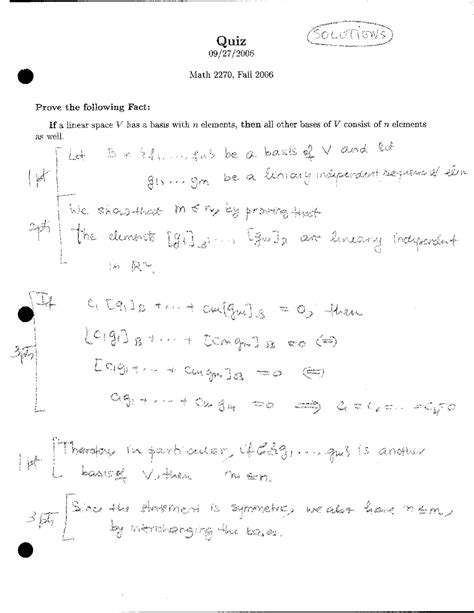 SOLUTIONS
Quiz
09/27/2006
Math 2270, Fall 2006
Prove the following Fact:
If a linear space V has a basis with n elements, then all other bases of V consist of n elements
as well.
Let B = {f1, ..., fn} be a basis of V and let
1 pt
g1, ... gm be a lineary independent sequence of elem
We show that m ≤ n, by proving that
2 pts
the elements [g1]B, ..., [gm]B are lineary independent
in R^n.
If c1 [g1]B + ... + cm [gm]B = 0, then
[c1g1]B + ... + [cmgm]B = 0 (=)
3 pts
[c1g1 + ... + cmgm]B = 0 (=)
c1g1 + ... + cm gm = 0 => c1 = c2 = ... = cm = 0
Therefore in particular, if {g1, ... gm} is another
1 pt
basis of V, then m ≤ n.
Since the statement is symmetric, we also have n ≤ m,
3 pts
by interchanging the bases.